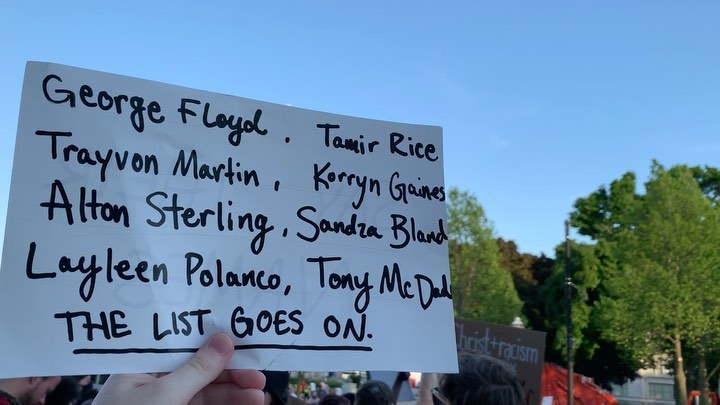 George Floyd. Tamir Rice
Trayvon Martin, Korryn Gaines
Alton Sterling, Sandra Bland
Layleen Polanco, Tony McDad
THE LIST GOES ON.
racism